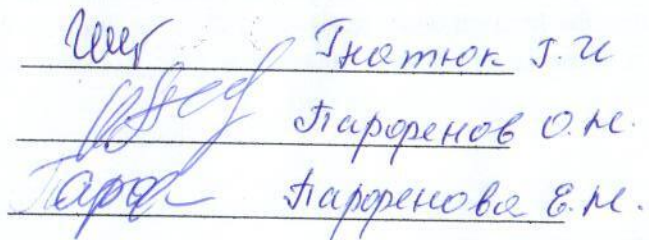 Гнатюк Г.И
Парфенов О.Н.
Парф Парфенова Е.Н.